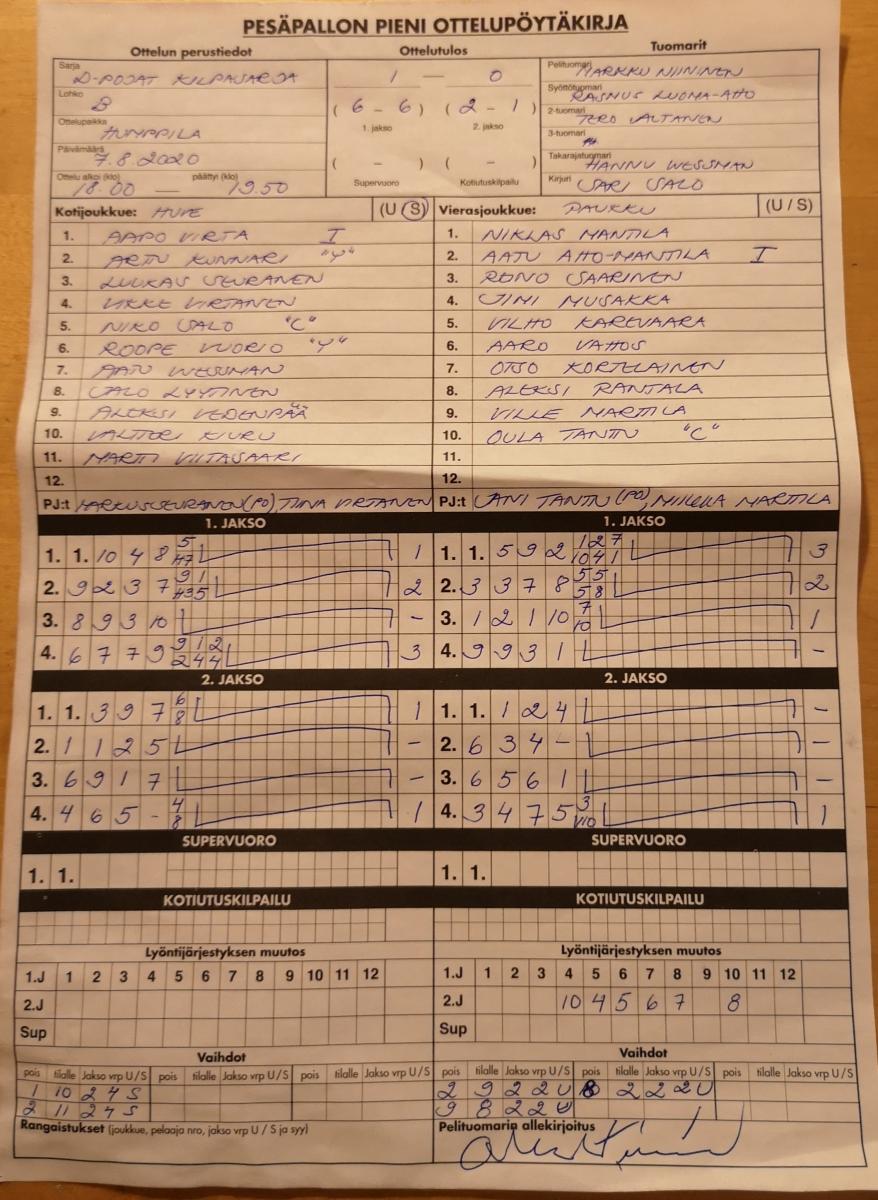 PESÄPALLON PIENI OTTELUPÖYTÄKIRJA
Ottelun perustiedot Ottelutulos Tuomarit
Sarja D-POJAT KILPASARJA
Lohko B
Ottelupaikka HUMPPILA
Päivämäärä 7.8.2020
Ottelu alkoi (klo) 18.00 — päättyi (klo) 19.50
1 — 0
( 6 - 6 ) ( 2 - 1 )
1. jakso 2. jakso
( - ) ( - )
Supervuoro Kotiutuskilpailu
Pelituomari MARKKU NIININEN
Syöttötuomari RASMUS LUOMA-AHO
2-tuomari TERO VALTANEN
3-tuomari
Takarajatuomari HANNU WESSMAN
Kirjuri SARI SALO
Kotijoukkue: HUVE (U / S)
1. AAPO VIRTA I
2. ARTU KUNNARI "Y"
3. LUUKAS SEURANEN
4. VIKKE VIRTANEN
5. NIKO SALO "C"
6. ROOPE VUORIO "Y"
7. AATU WESSMAN
8. JALO LYYTINEN
9. ALEKSI VEDENPÄÄ
10. VALTTERI KIURU
11. MARTTI VIITASAARI
12.
PJ:t MARKUS SEURANEN (PO), TIINA VIRTANEN
Vierasjoukkue: PAUKKU (U / S)
1. NIKLAS MANTILA
2. AATU AHO-MANTILA I
3. RONO SAARINEN
4. JIMI MUSAKKA
5. VILHO KAREVAARA
6. AARO VAHOS
7. OTSO KORTELAINEN
8. ALEKSI RANTALA
9. VILLE MARTTILA
10. OULA TANTTU "C"
11.
12.
PJ:t JANI TANTTU (PO), MARTTILA
1. JAKSO 1. JAKSO
1. 1. 10 4 8 5 7 1
2. 9 2 3 7 9 1 5 2
3. 8 9 3 10 -
4. 6 7 7 9 9 1 2 2 4 4 3
1. 1. 5 9 2 1 2 7 10 4 1 3
2. 3 3 7 8 5 5 5 8 2
3. 1 2 1 10 7 10 1
4. 9 9 3 1 -
2. JAKSO 2. JAKSO
1. 1. 3 9 7 6 8 1
2. 1 1 2 5 -
3. 6 9 1 7 -
4. 4 6 5 - 4 8 1
1. 1. 1 2 4 -
2. 6 3 4 - -
3. 6 5 6 1 -
4. 3 4 7 5 3 V10 1
SUPERVUORO SUPERVUORO
1. 1. 1. 1.
KOTIUTUSKILPAILU KOTIUTUSKILPAILU
Lyöntijärjestyksen muutos Lyöntijärjestyksen muutos
1.J 1 2 3 4 5 6 7 8 9 10 11 12
2.J
Sup
1.J 1 2 3 4 5 6 7 8 9 10 11 12
2.J 10 4 5 6 7 8
Sup
Vaihdot Vaihdot
pois tilalle Jakso vrp U / S pois tilalle Jakso vrp U / S pois tilalle Jakso vrp U / S
1 10 2 4 S
2 11 2 4 S
pois tilalle Jakso vrp U / S pois tilalle Jakso vrp U / S pois tilalle Jakso vrp U / S
2 9 2 2 U 8 2 2 2 U
9 8 2 2 U
Rangaistukset (joukkue, pelaaja nro, jakso vrp U / S ja syy)
Pelituomarin allekirjoitus